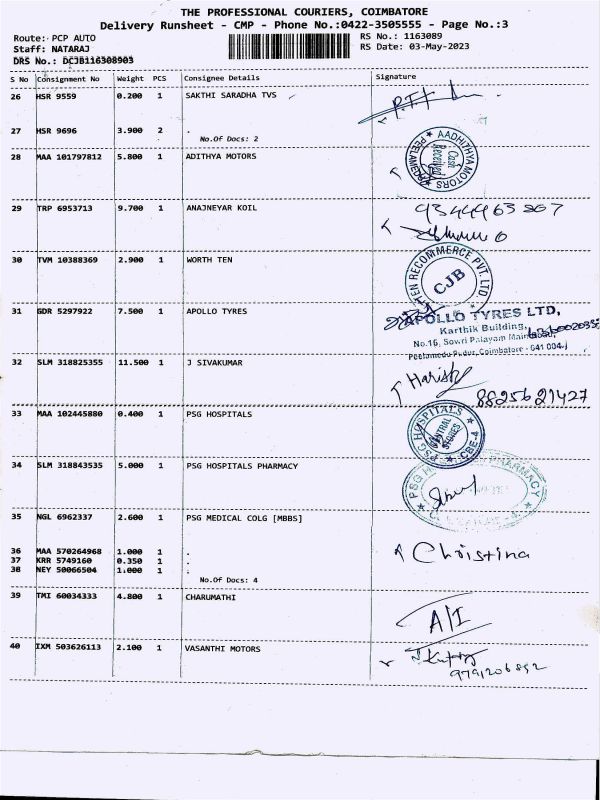 THE PROFESSIONAL COURIERS, COIMBATORE
Delivery Runsheet - CMP - Phone No.:0422-3505555 - Page No.:3
Route: PCP AUTO RS No.: 1163089
Staff: NATARAJ RS Date: 03-May-2023
DRS No.: DCJB116308903
S No Consignment No Weight PCS Consignee Details Signature
26 HSR 9559 0.200 1 SAKTHI SARADHA TVS
27 HSR 9696 3.900 2 .
No.Of Docs: 2
28 MAA 101797812 5.800 1 ADITHYA MOTORS
AADHITHYA MOTORS
PEELAMEDU
Received
29 TRP 6953713 9.700 1 ANAJNEYAR KOIL
30 TVM 10388369 2.900 1 WORTH TEN
TEN RECOMMERCE PVT. LTD
CJB
31 GDR 5297922 7.500 1 APOLLO TYRES
APOLLO TYRES LTD,
Karthik Building,
No.16, Sowri Palayam Main
Peelamedu Pudur, Coimbatore - 641 004
32 SLM 318825355 11.500 1 J SIVAKUMAR
Harish
8825621427
33 MAA 102445880 0.400 1 PSG HOSPITALS
PSG HOSPITALS
CENTRAL
STORES
CBE-4
34 SLM 318843535 5.000 1 PSG HOSPITALS PHARMACY
PSG PHARMACY
35 NGL 6962337 2.600 1 PSG MEDICAL COLG [MBBS]
36 MAA 570264968 1.000 1 .
37 KRR 5749160 0.350 1 .
38 NEY 50066504 1.000 1 .
Christina
No.Of Docs: 4
39 TMI 60034333 4.800 1 CHARUMATHI
A/I
40 IXM 503626113 2.100 1 VASANTHI MOTORS